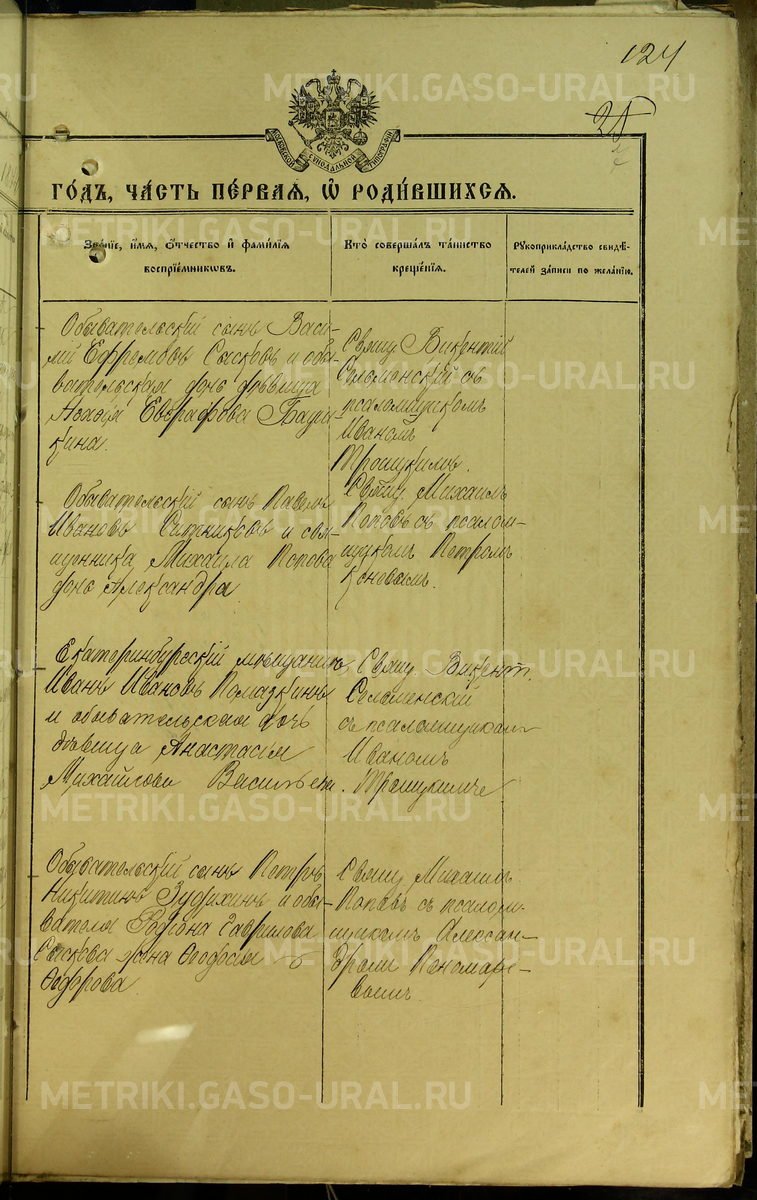 124
25
МОСКОВСКОЙ СѴНОДАЛЬНОЙ ТИПОГРАФІИ
ГО́ДЪ, ЧА́СТЬ ПЕ́РВАЯ, Ѿ РОДИ́ВШИХСЯ.
Зва́нїе, и҆́мя, ѻ҆́тчество и҆ фами́лїя
воспрїе́мникѡвъ.
Кто̀ соверша́лъ та́инство
креще́нїя.
Рꙋкоприкла́дство свидѣ́-
телей за́писи по жела́нїю.
Обывательскій сынъ Васи-
лій Ефремовъ Сысковъ и обы-
вательская дочь дѣвица
Евграфова
кина.
Свящ. Викентій
Селоменскій съ
псаломщикомъ
Иваномъ
Троицкимъ.
Обывательскій сынъ Павелъ
Ивановъ Ситниковъ и свя-
щенника Михаила Попова
дочь Александра.
Свящ. Михаилъ
Поповъ съ псалом-
щикомъ Петромъ
Коневымъ.
Екатеринбургскій мѣщанинъ
Иванъ Ивановъ Помазкинъ
и обывательская дочь
дѣвица Анастасія
Михайлова Васильева.
Свящ. Викент.
Селоменскій
съ псаломщикомъ
Иваномъ
Троицкимъ
Обывательскій сынъ Петръ
Никитинъ и обы-
вателя Родіона Гаврилова
Сыскова жена Ѳеодосья
Ѳедорова
Свящ. Михаилъ
Поповъ съ псалом-
щикомъ Алексан-
дромъ Пономаре-
вымъ.
METRIKI.GASO-URAL.RU